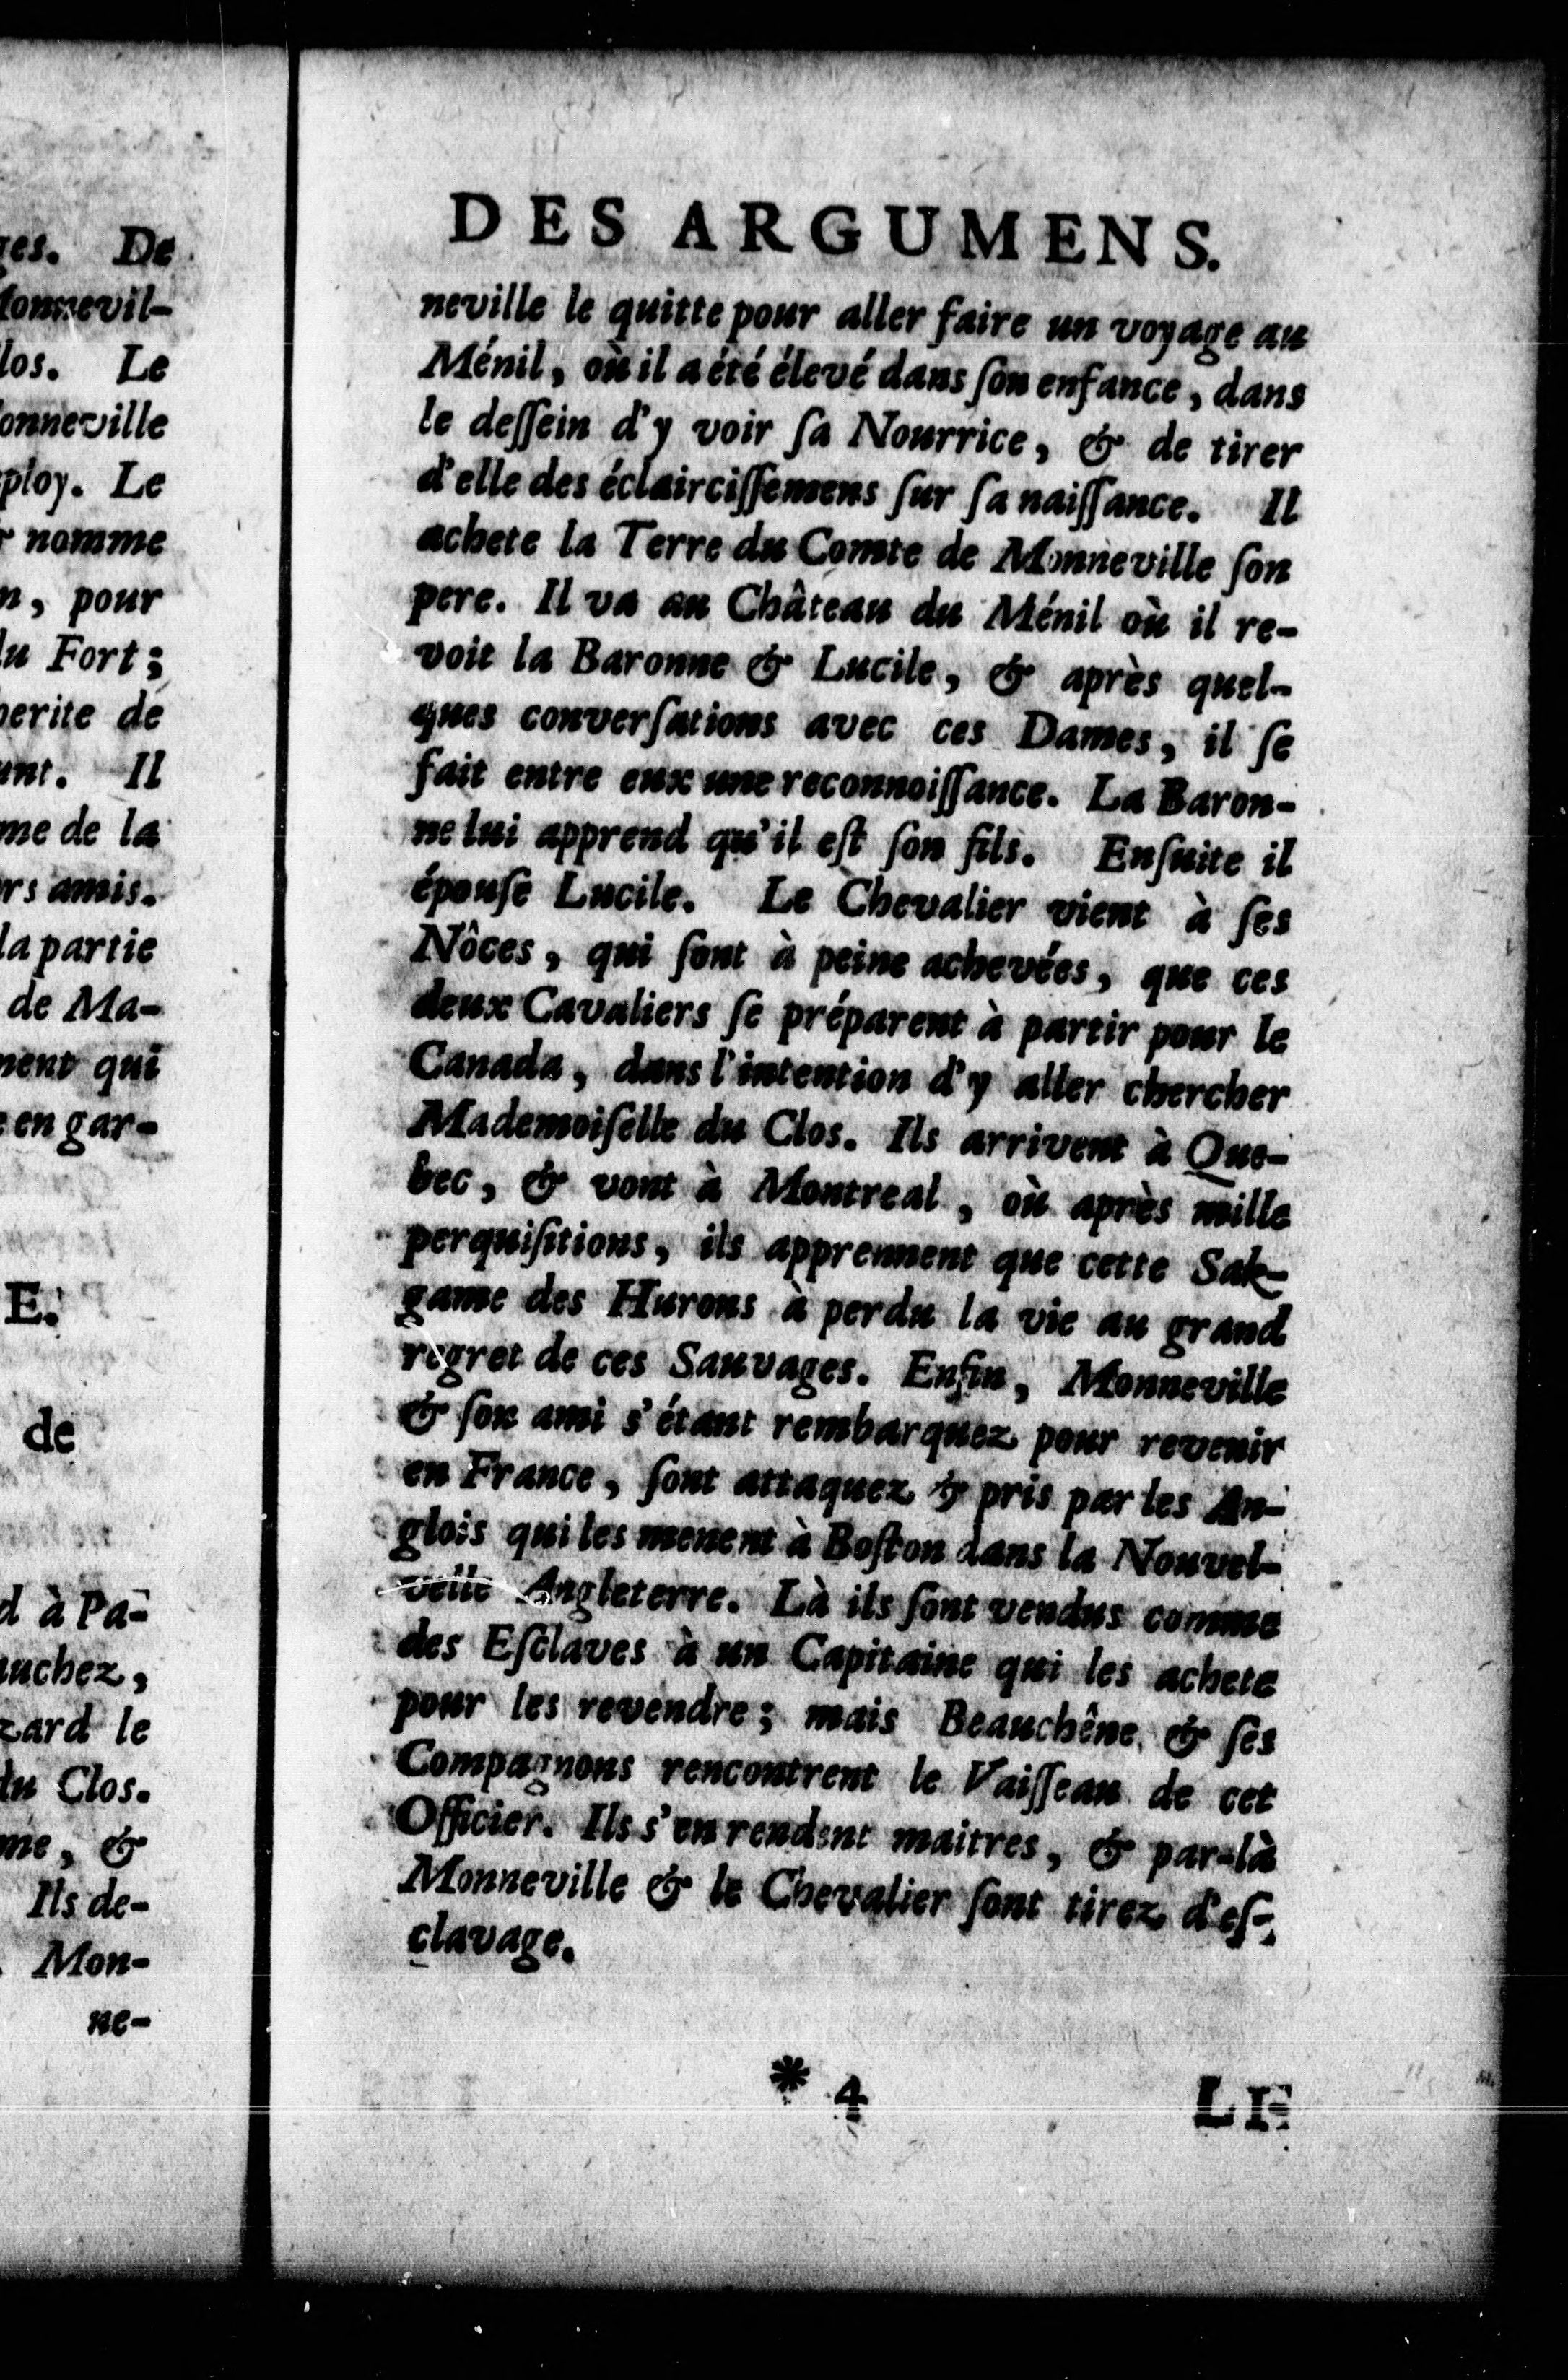 ges. De
onnevil-
los. Le
onneville
ploy. Le
r nomme
n, pour
du Fort;
herite de
ant. Il
me de la
rs amis.
la partie
de Ma-
ment qui
en gar-
E.
de
d à Pa-
uchez,
zard le
du Clos.
me, &
Ils de-
Mon-
ne-
DES ARGUMENS.
neville le quitte pour aller faire un voyage au
Ménil, où il a été élevé dans ſon enfance, dans
le deſſein d'y voir ſa Nourrice, & de tirer
d'elle des éclairciſſemens ſur ſa naiſſance. Il
achete la Terre du Comte de Monneville ſon
pere. Il va au Château du Ménil où il re-
voit la Baronne & Lucile, & après quel-
ques converſations avec ces Dames, il ſe
fait entre eux une reconnoiſſance. La Baron-
ne lui apprend qu'il eſt ſon fils. Enſuite il
épouſe Lucile. Le Chevalier vient à ſes
Nôces, qui ſont à peine achevées, que ces
deux Cavaliers ſe préparent à partir pour le
Canada, dans l'intention d'y aller chercher
Mademoiſelle du Clos. Ils arrivent à Que-
bec, & vont à Montreal, où après mille
perquiſitions, ils apprennent que cette Sak-
game des Hurons à perdu la vie au grand
regret de ces Sauvages. Enfin, Monneville
& ſon ami s'étant rembarquez pour revenir
en France, ſont attaquez & pris par les An-
glois qui les menent à Boſton dans la Nouvel-
velle Angleterre. Là ils ſont vendus comme
des Eſclaves à un Capitaine qui les achete
pour les revendre; mais Beauchêne & ſes
Compagnons rencontrent le Vaiſſeau de cet
Officier. Ils s'en rendent maitres, & par-là
Monneville & le Chevalier ſont tirez d'eſ-
clavage.
* 4
LE